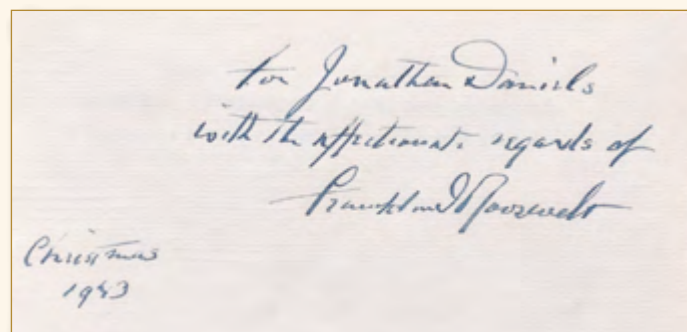 for Jonathan Daniels
with the affectionate regards of
Franklin D Roosevelt
Christmas
1943